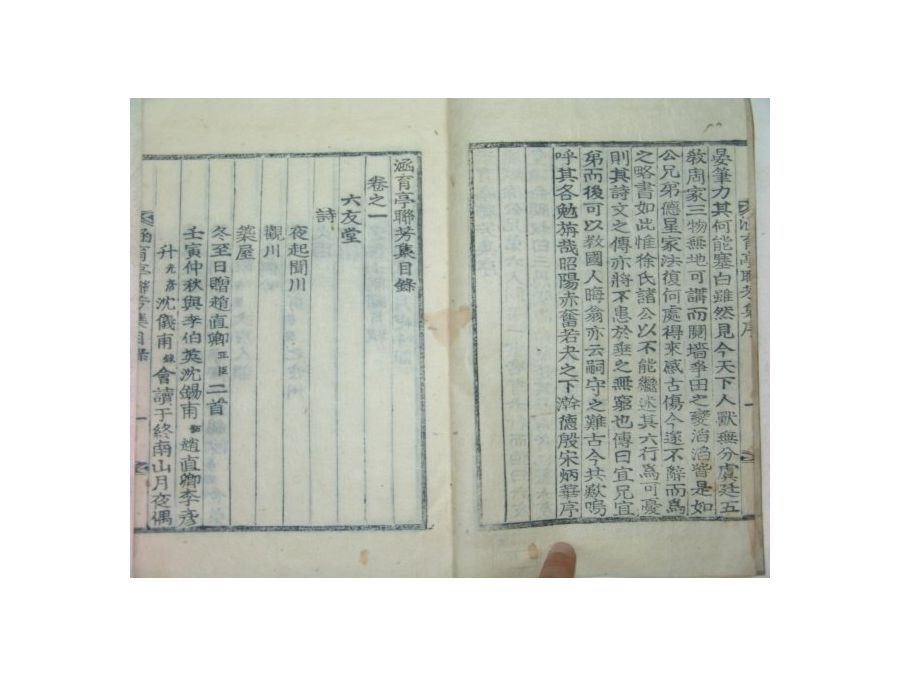 晏筆力其何能塞白雖然見今天下人獸無分虞廷五
敎周家三物無地可講而鬩墻爭田之變滔滔皆是如
公兄弟德星家法復何處得來感古傷今遂不辭而爲
之略書如此惟徐氏諸公以不能繼述其六行爲可憂
則其詩文之傳亦將不患於垂之無窮也傳曰宜兄宜
弟而後可以敎國人晦翁亦云嗣守之難古今共歎嗚
呼其各勉旃哉昭陽赤奮若夬之下澣德殷宋炳華序
育亭聯芳集序
一
涵育亭聯芳集目錄
卷之一
六友堂
詩
夜起聞川
觀川
築屋
冬至日贈趙直卿正臣二首
壬寅仲秋與李伯英沈錫甫趙直卿李彦
升光彦沈儀甫會讀于終南山月夜偶
涵育亭聯芳集目錄
一